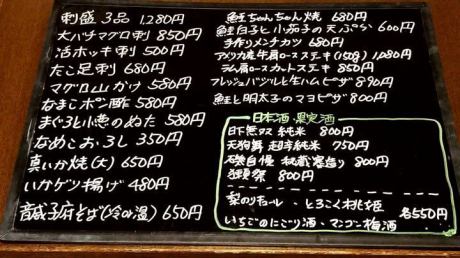 刺盛 3品 1,280円
大バチマグロ刺 850円
活ホッキ刺 500円
たこ足刺 680円
マグロ山かけ 580円
なまこポン酢 580円
まぐろと小魚のぬた 580円
なめこおろし 350円
真いか焼(大) 650円
いかゲソ揚げ 480円
音威子府そば(冷or温) 650円
鮭ちゃんちゃん焼 680円
鮭白子と小茄子の天ぷら 600円
手作りメンチカツ 680円
アメリカ産牛肩ロースステーキ(150g) 1,080円
ラム肩ロースカットステーキ 850円
フレッシュバジルと生ハムピザ 890円
鮭と明太子のマヨピザ 800円
日本酒・果実酒
日下無双 純米 800円
天狗舞 超辛純米 750円
磯自慢 800円
獺祭 800円
梨のリキュール・とろこく桃姫
いちごのにごり酒・マンゴー梅酒
各550円